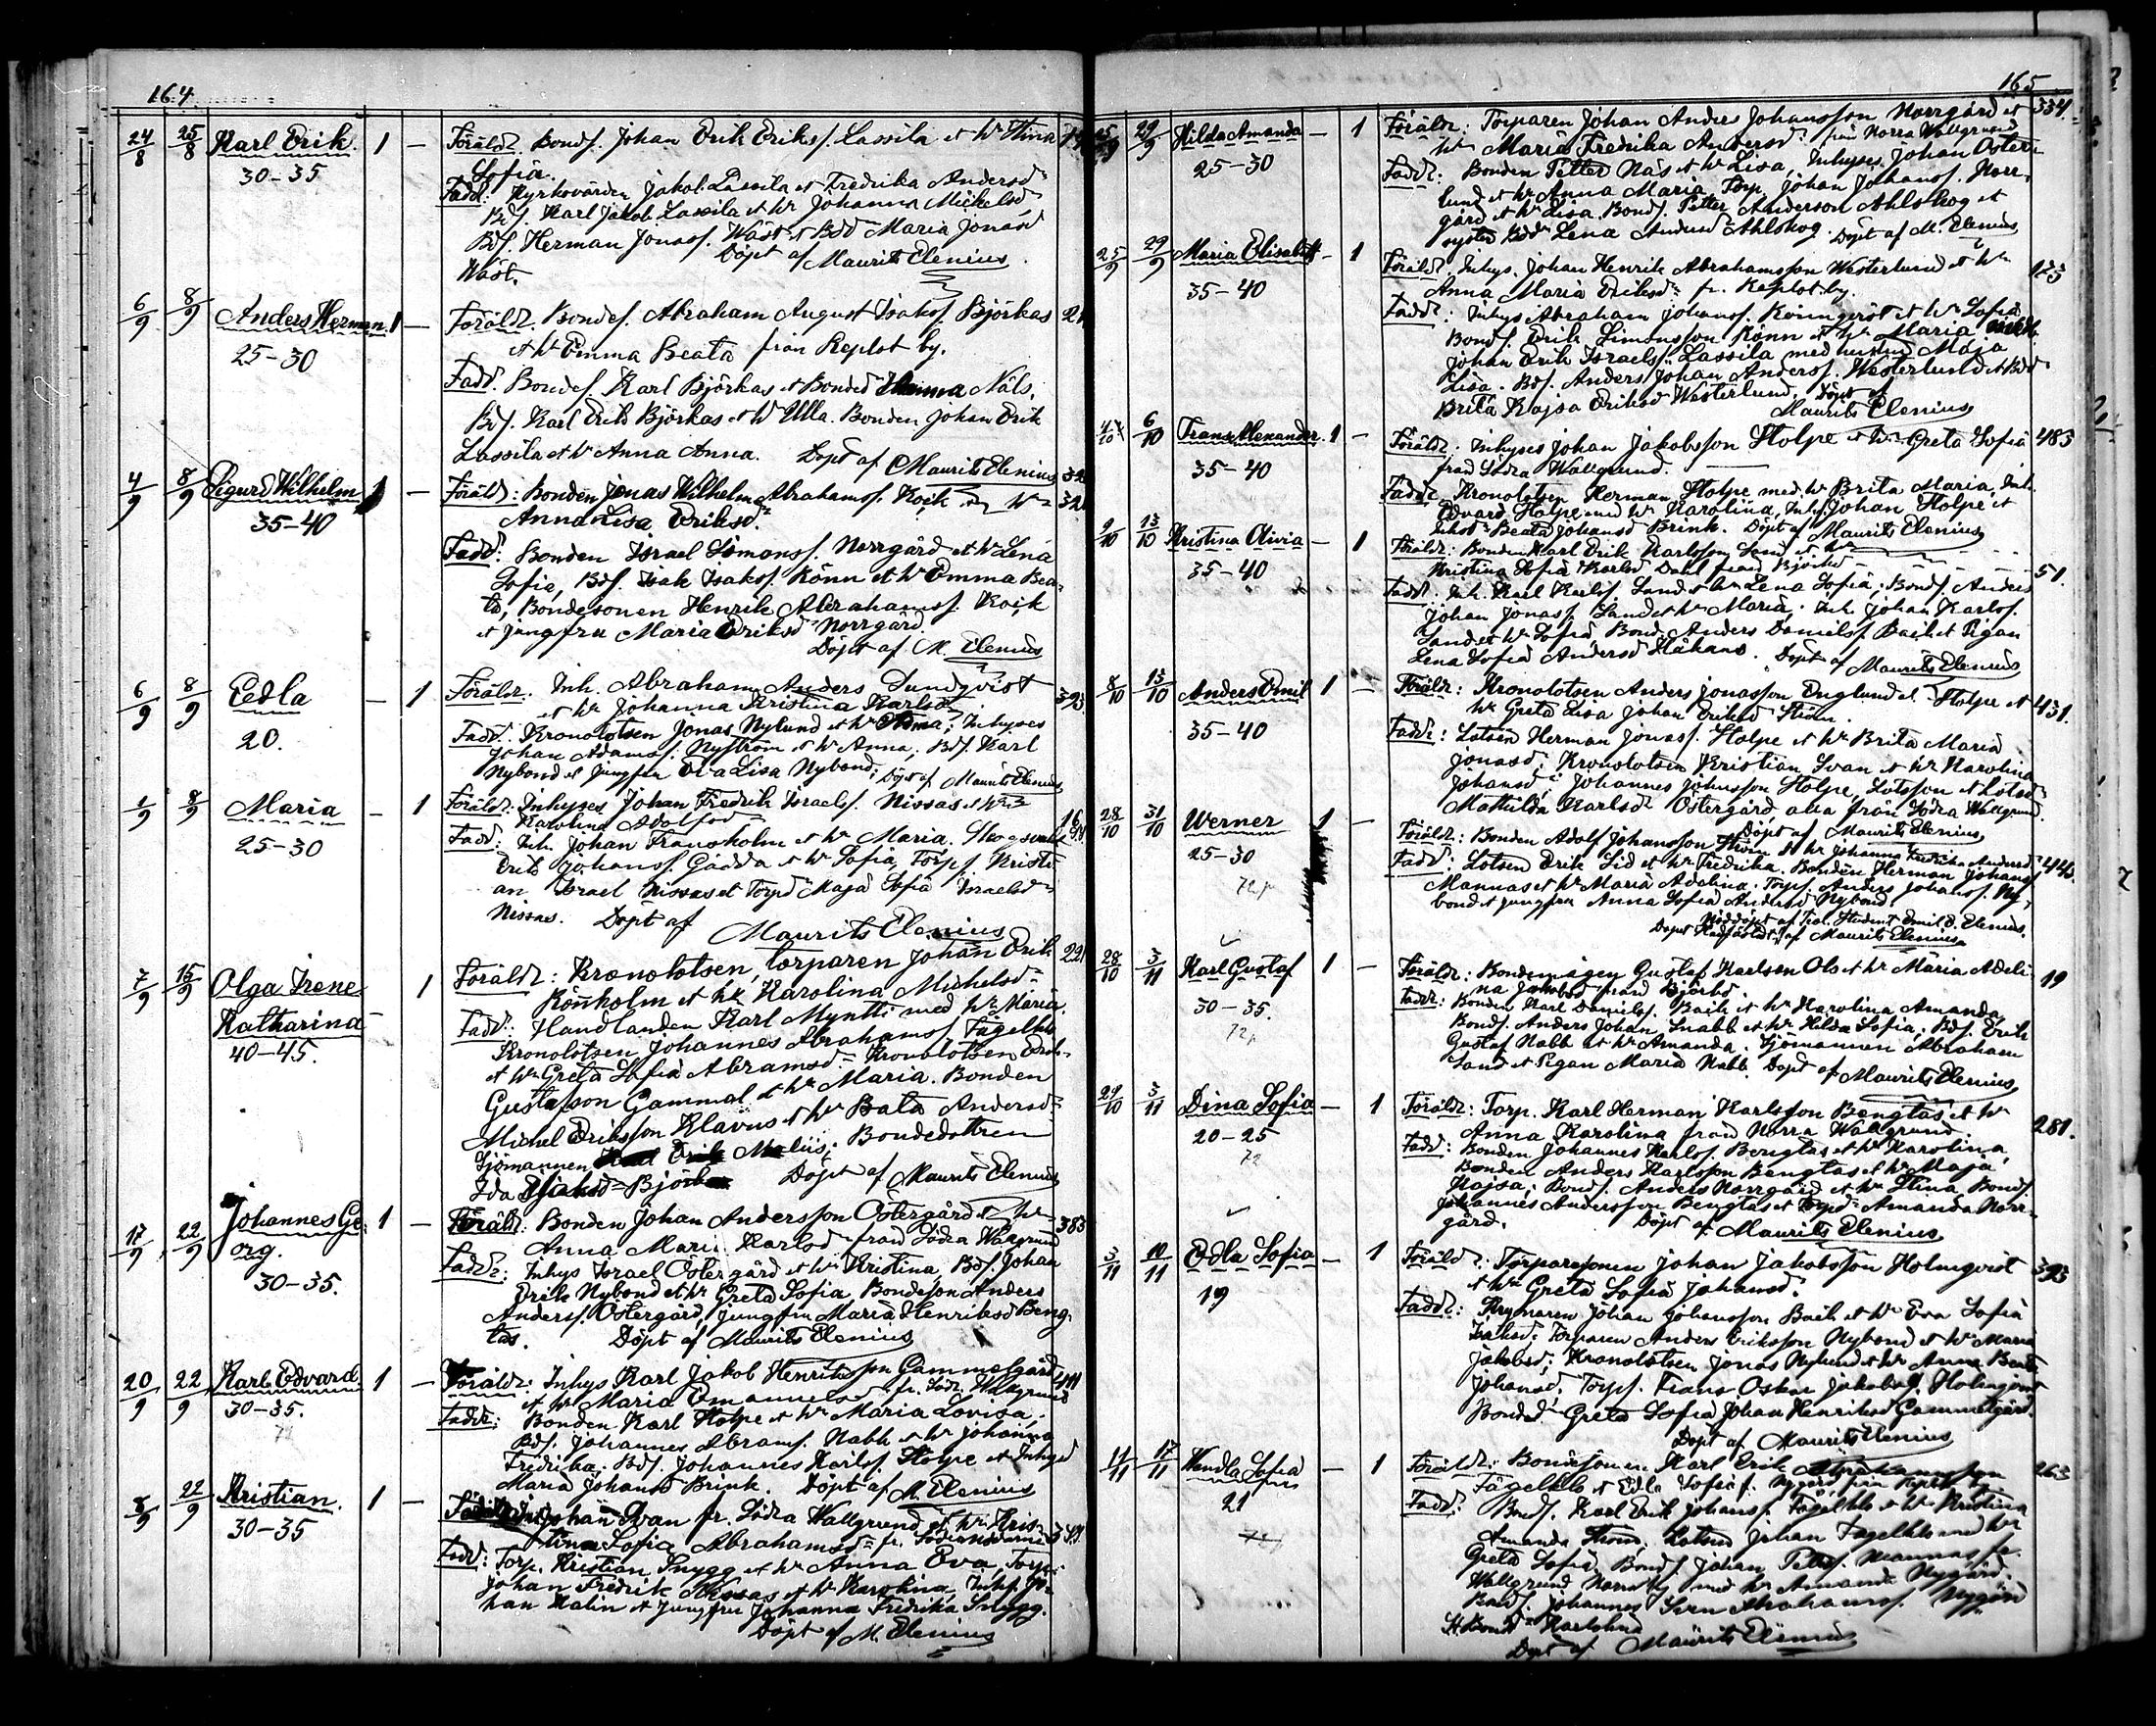 164
24/8 25/8 Karl Erik 1 — Föräldr. Bonds. Johan Erik Erikss. Lassila et hr Stina
30-35 Sofia.
Fadd: Kyrkovärden Jakob Lassila et Fredrika Andersd
Bds. Karl Jakob Lassila et hr Johanna Mickelsd
Bds. Herman Jonass. Wäst et Bdd Maria Jonasd
Wäst. Döpt af Maurits Elenius
6/9 8/9 Anders Herman 1 — Föräldr. Bondes. Abraham August Isakss. Björkas
25-30 et hr Emma Beata från Replot by.
Fadd. Bondes. Karl Björkas et Bonded Näls,
Bds. Karl Erik Björkas et hr Ulla. Bonden Johan Erik
Lassila et hr Anna Anna. Döpt af Maurits Elenius
4/9 8/9 Sigurd Wilhelm 1 — Föräld: Bonden Jonas Wilhelm Abrahamss. Kock 32
35-40 Anna Lisa Eriksd.
Fadd: Bonden Israel Simonss. Norrgård et hr Lena
Sofia, Bds. Isak Isakss. Rönn et hr Emma Bea-
ta, Bondesonen Henrik Abrahamss. Kock
et jungfru Maria Eriksd Norrgård.
Döpt af M. Elenius
6/9 8/9 Edla — 1 Föräldr. Inh. Abraham Anders Sundqvist 393
20. et hr Johanna Kristina Karlsd
Fadd. Kronolotsen Jonas Nylund et hr Anna; Inhyses
Johan Adamss. Nyström et hr Anna; Bds. Karl
Nybond et jungfru Eva Lisa Nybond; Döpt af Maurits Elenius
1/9 8/9 Maria — 1 Föräldr: Inhyses Johan Fredrik Israelss. Nissas et hr
25-30 Karolina Adolfsd
Fadd: Inh. Johan Fransholm et hr Maria.
Erik Johanss. Gädda et hr Sofia, Torps. Kristi-
an Israel Nissas et Torpd Maja Sofia Israelsd
Nissas. Döpt af Maurits Elenius
7/9 15/9 Olga Irene 1 Föräldr: Kronolotsen, torparen Johan Erik 221
Katharina Rönnholm et hr Karolina Michelsd
40-45. Fadd: Handlanden Karl Myntti med hr Maria.
Kronolotsen Johannes Abrahamss. Fågelklo
et hr Greta Sofia Abramsd Kronolotsen Erik
Gustafsson Gammal et hr Maria. Bonden
Michel Eriksson Klavus et hr Bata Andersd
Sjömannen Bondedottren
Ida Döpt af Maurits Elenius
17/9 22/9 Johannes Ge- 1 — Föräldr: Bonden Johan Andersson Östergård et hr 383
org. Anna Mari Karlsd från Södra Wallgrund
30-35. Fadd: Inhys Israel Östergård et hr Kristina, Bds. Johan
Erik Nybond et hr Greta Sofia, Bondeson Anders
Anderss. Östergård, jungfru Maria Henriksd Beng-
tas. Döpt af Maurits Elenius
20/9 22/9 Karl Edvard 1 — Föräldr: Inhys Karl Jakob Henriksson Gammelgård
30-35. et hr Maria Emanuelsd fr. Södr. Wallgrund
72 Fadd: Bonden Karl Stolpe et hr Maria Lovisa;
Bds. Johannes Abrams. Nabb et hr Johanna
Fredrika. Bds. Johannes Karlss. Stolpe et Inhysd
Maria Johansd Brink. Döpt af M. Elenius
5/9 22/9 Kristian. 1 — Johan Svan fr. Södra Wallgrund et hr Kris-
30-35 tina Sofia Abrahamsd fr. Södersudden
Fadd: Torp. Kristian Snygg et hr Anna Eva, Torps.
Johan Fredrik Nissas et hr Karolina, Inhys. Jo-
han Malin et jungfru Johanna Fredrika Snygg.
Döpt af M. Elenius
165
25/9 29/9 Hilda Amanda — 1 Föräldr: Torparen Johan Anders Johansson Norrgård et 334
25-30 hr Maria Fredrika Andersd. från Norra Wallgrund
Fadd: Bonden Petter Näs et hr Lisa, Inhyses Johan Öster-
lund et hr Anna Maria, Torp. Johan Johanss. Norr-
gård et hr Lisa, Bonds. Petter Anderson Ahlskog et
syster Bdd Lena Andersd Ahlskog. Döpt af M. Elenius
25/9 29/9 Maria Elisabeth — 1 Föräldr. Inhys. Johan Henrik Abrahamsson Westerlund et hr 123
35-40 Anna Maria Eriksd fr. Replot by.
Fadd: Inhys Abraham Johanss. et hr Sofia
Bonds. Erik Simonsson Rönn et hr Maria
Johan Erik Israelss. Lassila med hustru Maja
Lisa. Bds. Anders Johan Anderss. Westerlund et Bdd
Brita Kajsa Eriksd Westerlund. Döpt af
Maurits Elenius
4/10 6/10 Frans Alexander 1 — Föräldr. Inhyses Johan Jakobsson Stolpe et hr Greta Sofia 485
35-40 från Södra Wallgrund.
Fadd. Kronolotsen Herman Stolpe med hr Brita Maria, Inh.
Edvard Stolpe med hr Karolina, Inhys. Johan Stolpe et
Inhysd Beata Johansd Brink. Döpt af Maurits Elenius
9/10 13/10 Kristina Olivia — 1 Föräldr: Bonden Karl Erik Karlsson Sand et hr
35-40 Kristina Sofia Karlsd Dahl från Björkö 51.
Fadd. Inh. Karl Karlss. Sand et hr Lena Sofia; Bonds. Anders
Johan Jonass. Sand et hr Maria; Inh. Johan Karlss.
Sand et hr Sofia, Bond. Anders Danielss. Back et Pigan
Lena Sofia Andersd Håkans. Döpt af Maurits Elenius
8/10 13/10 Anders Emil 1 — Föräldr: Kronolotsen Anders Jonasson Englund et Stolpe et 431.
35-40 hr Greta Lisa Johan Eriksd Ström.
Fadd: Lotsen Herman Jonass. Stolpe et hr Brita Maria
Jonasd; Kronolotsen Kristian Svan et hr Karolina
Johansd; Johannes Johnsson Stolpe, Lotsson et Lotsd
Mathilda Karlsd Östergård alla från Södra Wallgrund.
Döpt af Maurits Elenius
28/10 31/10 Werner 1 — Föräldr: Bonden Adolf Johansson Ström et hr Johanna Fredrika Andersd 446.
25-30 Fadd: Lotsen Erik Lid et hr Fredrika. Bonden Herman Johanss.
72 Mannas et hr Maria Adolina. Torps. Anders Johanss. Ny-
bond et jungfru Anna Sofia Andersd Nybond
Nöddöpt af Teol. Student Emil O. Elenius.
Dopet stadfästadt af Maurits Elenius
28/10 3/11 Karl Gustaf 1 — Föräldr: Bondemågen Gustaf Karlsson Ols et hr Maria Adeli- 19
30-35. na Jakobsd från Björkö.
72 Fadd: Bonden Karl Danielss. Back et hr Karolina Amanda,
Bonds. Anders Johan Snabb et hr Hilda Sofia; Bds. Erik
Gustaf Nabb et hr Amanda. Sjömannen Abraham
Sand et Pigan Maria Nabb. Döpt af Maurits Elenius
29/10 3/11 Dina Sofia — 1 Föräldr: Torp. Karl Herman Karlsson Bengtas et hr
20-25 Anna Karolina från Norra Wallgrund. 281.
72 Fadd: Bonden Johannes Karlss. Bengtas et hr Karolina,
Bonden Anders Karlsson Bengtas et hr Maja
Kajsa; Bonds. Anders Norrgård et hr Stina, Bonds.
Johannes Andersson Bengtas et Torpd Amanda Norr-
gård. Döpt af Maurits Elenius
3/11 10/11 Edla Sofia — 1 Föräld: Torparesonen Johan Jakobsson Holmqvist 393
19 et hr Greta Sofia Johansd.
Fadd: Krymaren Johan Johansson Back et hr Eva Sofia
Isaksd; Torparen Anders Eriksson Nybond et hr Maria
Jakobsd; Kronolotsen Jonas Nylund et hr Anna
Johansd. Torps. Frans Oskar Jakobss. Holmqvist
Bonded Greta Sofia Johan Henriksd Gammelgård.
Döpt af Maurits Elenius
11/11 17/11 Hendla Sofia — 1 Föräldr: Bondesonen Karl Erik Abrahamsson 263
21 Fågelklo et Edla Sofia f. Nygård från Replot by
Fadd: Bonds. Karl Erik Johanss. Fågelklo et hr Kristina
Amanda Ström. Lotsen Johan Fagelklo med hr
Greta Sofia, Bonds. Johan Petterss. Mannas fr.
Wallgrund Norra by med hr Amanda Nygård.
Bonds. Johannes Sven Abrahamss. Nygård
Döpt af Maurits Elenius